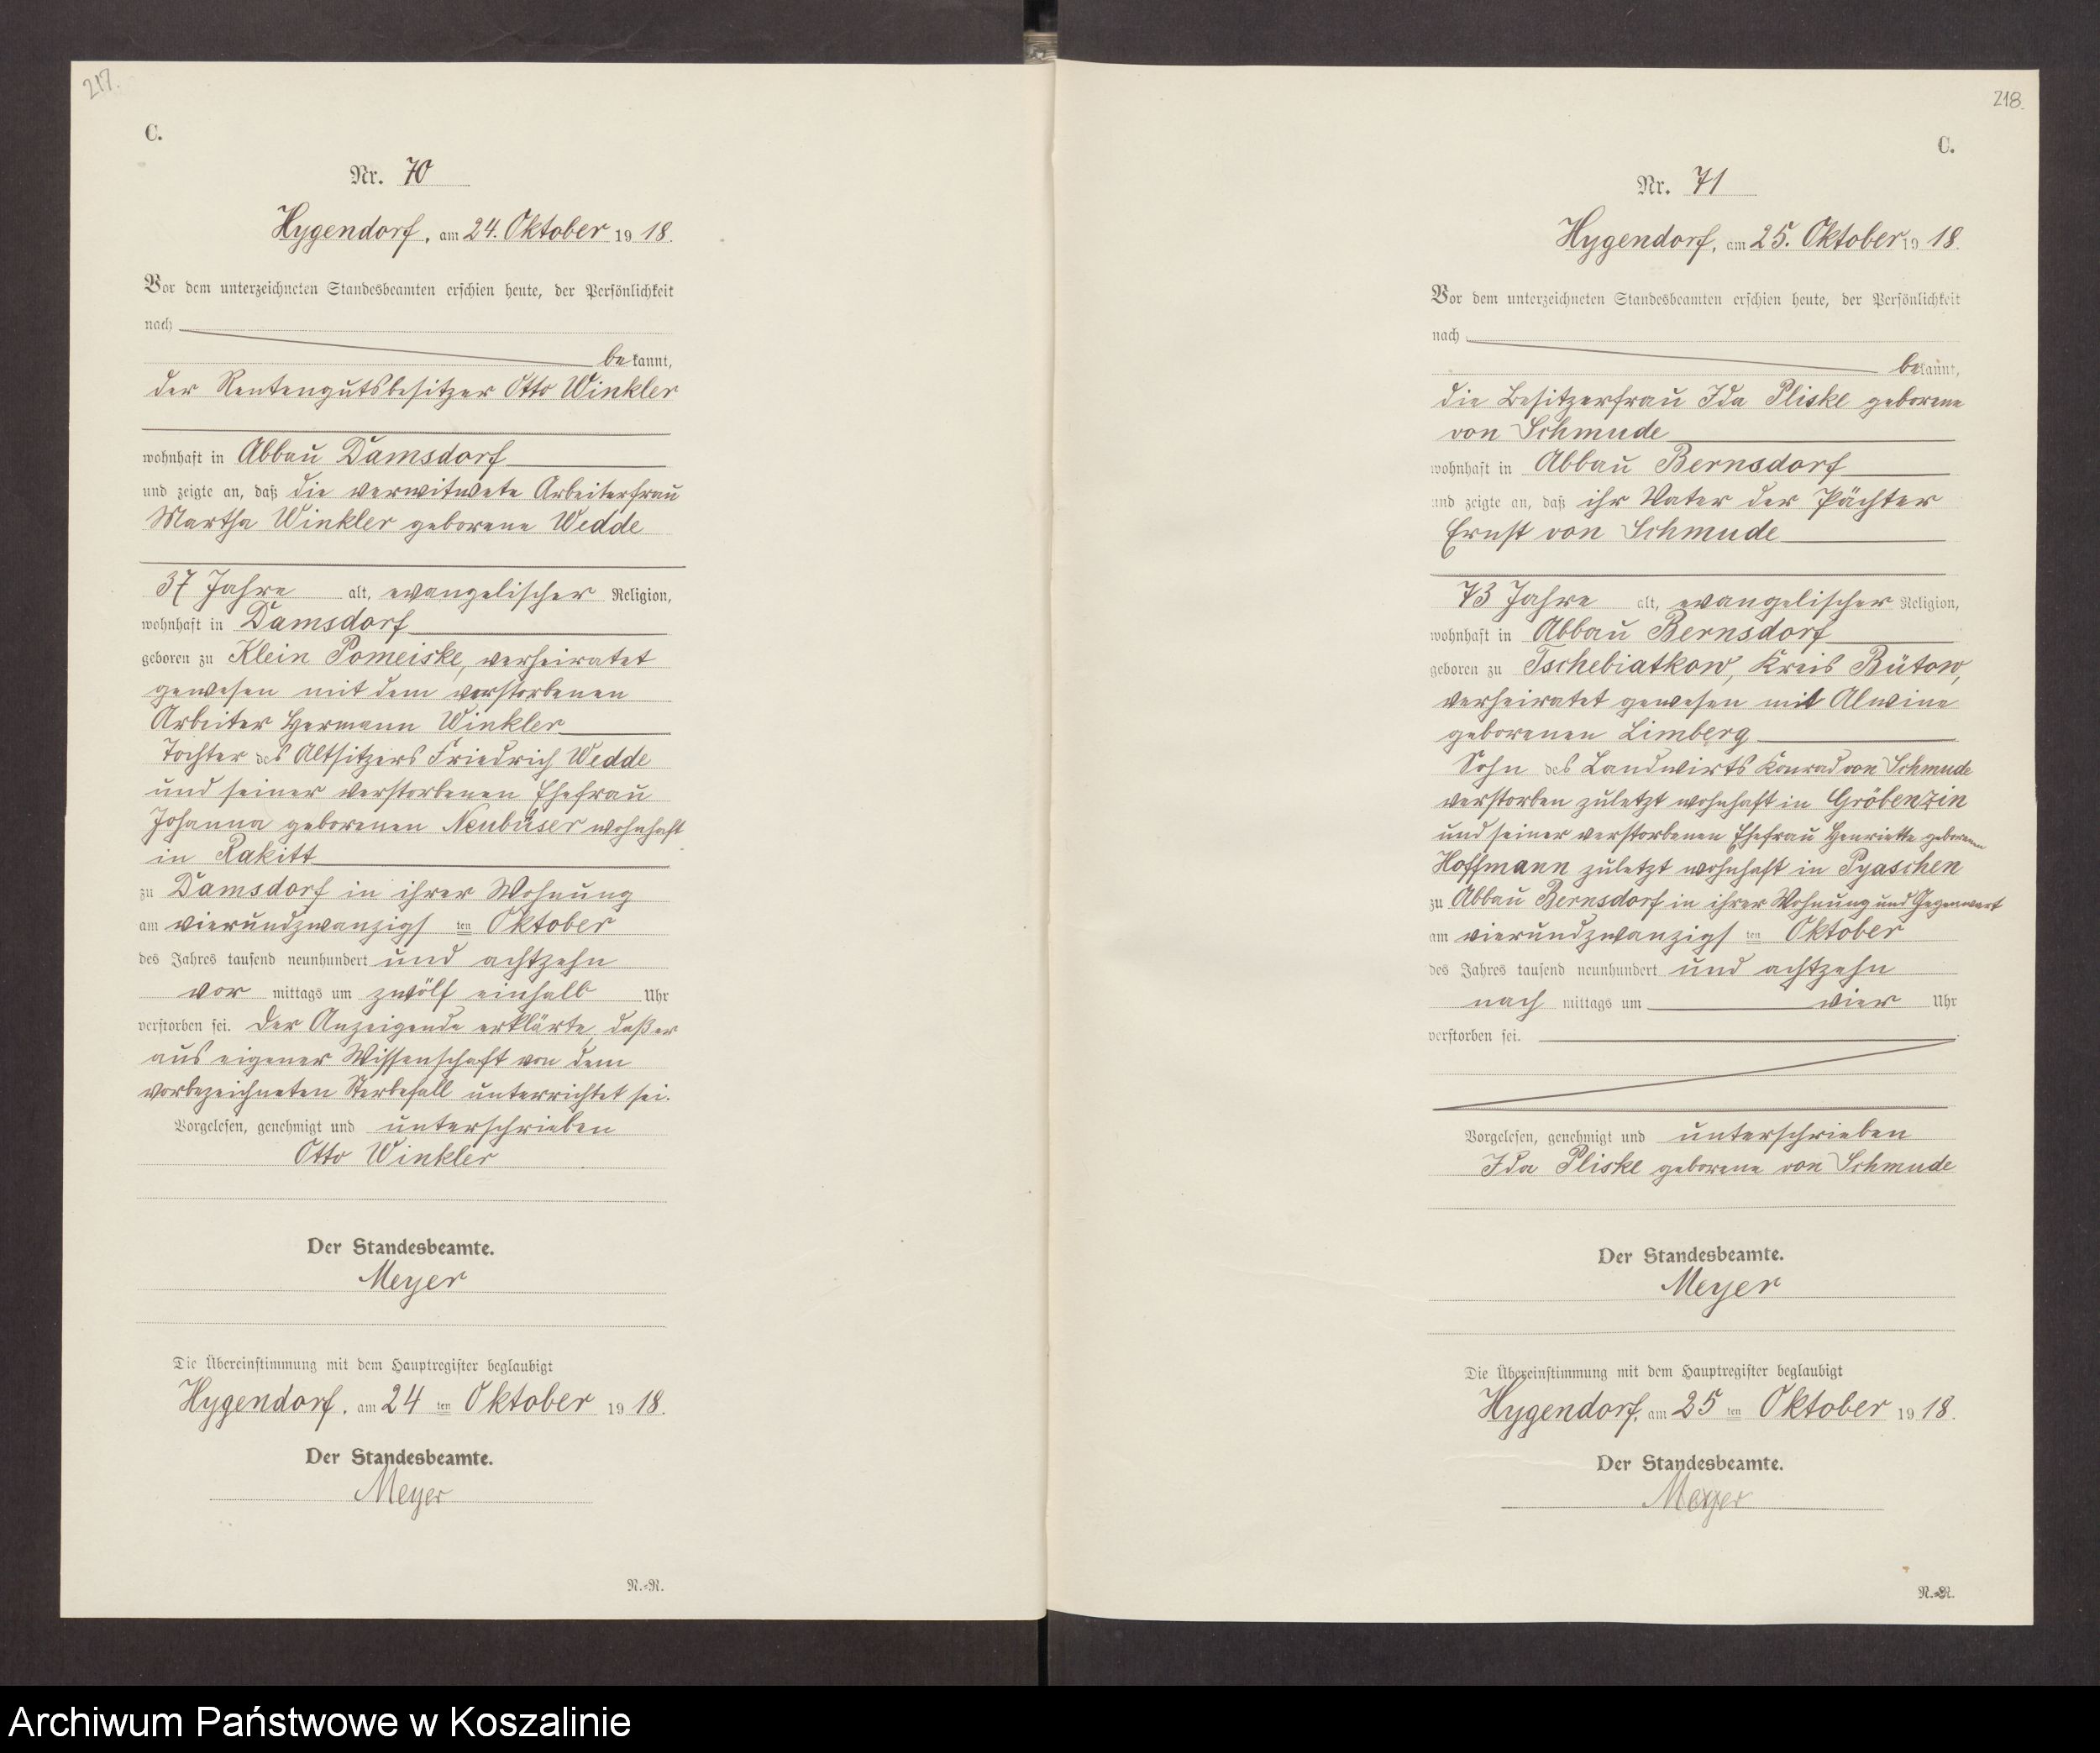 217.
C.
Nr. 70
Hygendorf, am 24. Oktober 1918.
Vor dem unterzeichneten Standesbeamten erschien heute, der Persönlichkeit
nach
bekannt,
der Rentengutsbesitzer Otto Winkler
wohnhaft in Abbau Damsdorf
und zeigte an, daß die verwitwete Arbeiterfrau
Martha Winkler geborene Wedde
37 Jahre alt, evangelischer Religion,
wohnhaft in Damsdorf
geboren zu Klein Pomeiske, verheiratet
gewesen mit dem verstorbenen
Arbeiter Hermann Winkler
Tochter des Altsitzers Friedrich Wedde
und seiner verstorbenen Ehefrau
Johanna geborenen Neubüser wohnhaft
in Rakitt
zu Damsdorf in ihrer Wohnung
am vierundzwanzigsten Oktober
des Jahres tausend neunhundert und achtzehn
vormittags um zwölf einhalb Uhr
verstorben sei. Der Anzeigende erklärte, daß er
aus eigener Wissenschaft von dem
vorbezeichneten Sterbefall unterrichtet sei.
Vorgelesen, genehmigt und unterschrieben
Otto Winkler
Der Standesbeamte.
Meyer
Die Übereinstimmung mit dem Hauptregister beglaubigt
Hygendorf, am 24ten Oktober 1918.
Der Standesbeamte.
Meyer
N.-N.
218.
C.
Nr. 71
Hygendorf, am 25. Oktober 1918.
Vor dem unterzeichneten Standesbeamten erschien heute, der Persönlichkeit
nach
bekannt,
die Besitzerfrau Ida Pliske geborene
von Schmude
wohnhaft in Abbau Bernsdorf
und zeigte an, daß ihr Vater der Pächter
Ernst von Schmude
73 Jahre alt, evangelischer Religion,
wohnhaft in Abbau Bernsdorf
geboren zu Tschebiatkow, Kreis Bütow,
verheiratet gewesen mit Alwine
geborenen Limberg
Sohn des Landwirts Konrad von Schmude
verstorben zuletzt wohnhaft in Gröbenzin
und seiner verstorbenen Ehefrau Henriette geborenen
Hoffmann zuletzt wohnhaft in Pyaschen
zu Abbau Bernsdorf in ihrer Wohnung und Gegenwart
am vierundzwanzigsten Oktober
des Jahres tausend neunhundert und achtzehn
nachmittags um vier Uhr
verstorben sei.
Vorgelesen, genehmigt und unterschrieben
Ida Pliske geborene von Schmude
Der Standesbeamte.
Meyer
Die Übereinstimmung mit dem Hauptregister beglaubigt
Hygendorf, am 25ten Oktober 1918.
Der Standesbeamte.
Meyer
N.-N.
Archiwum Państwowe w Koszalinie